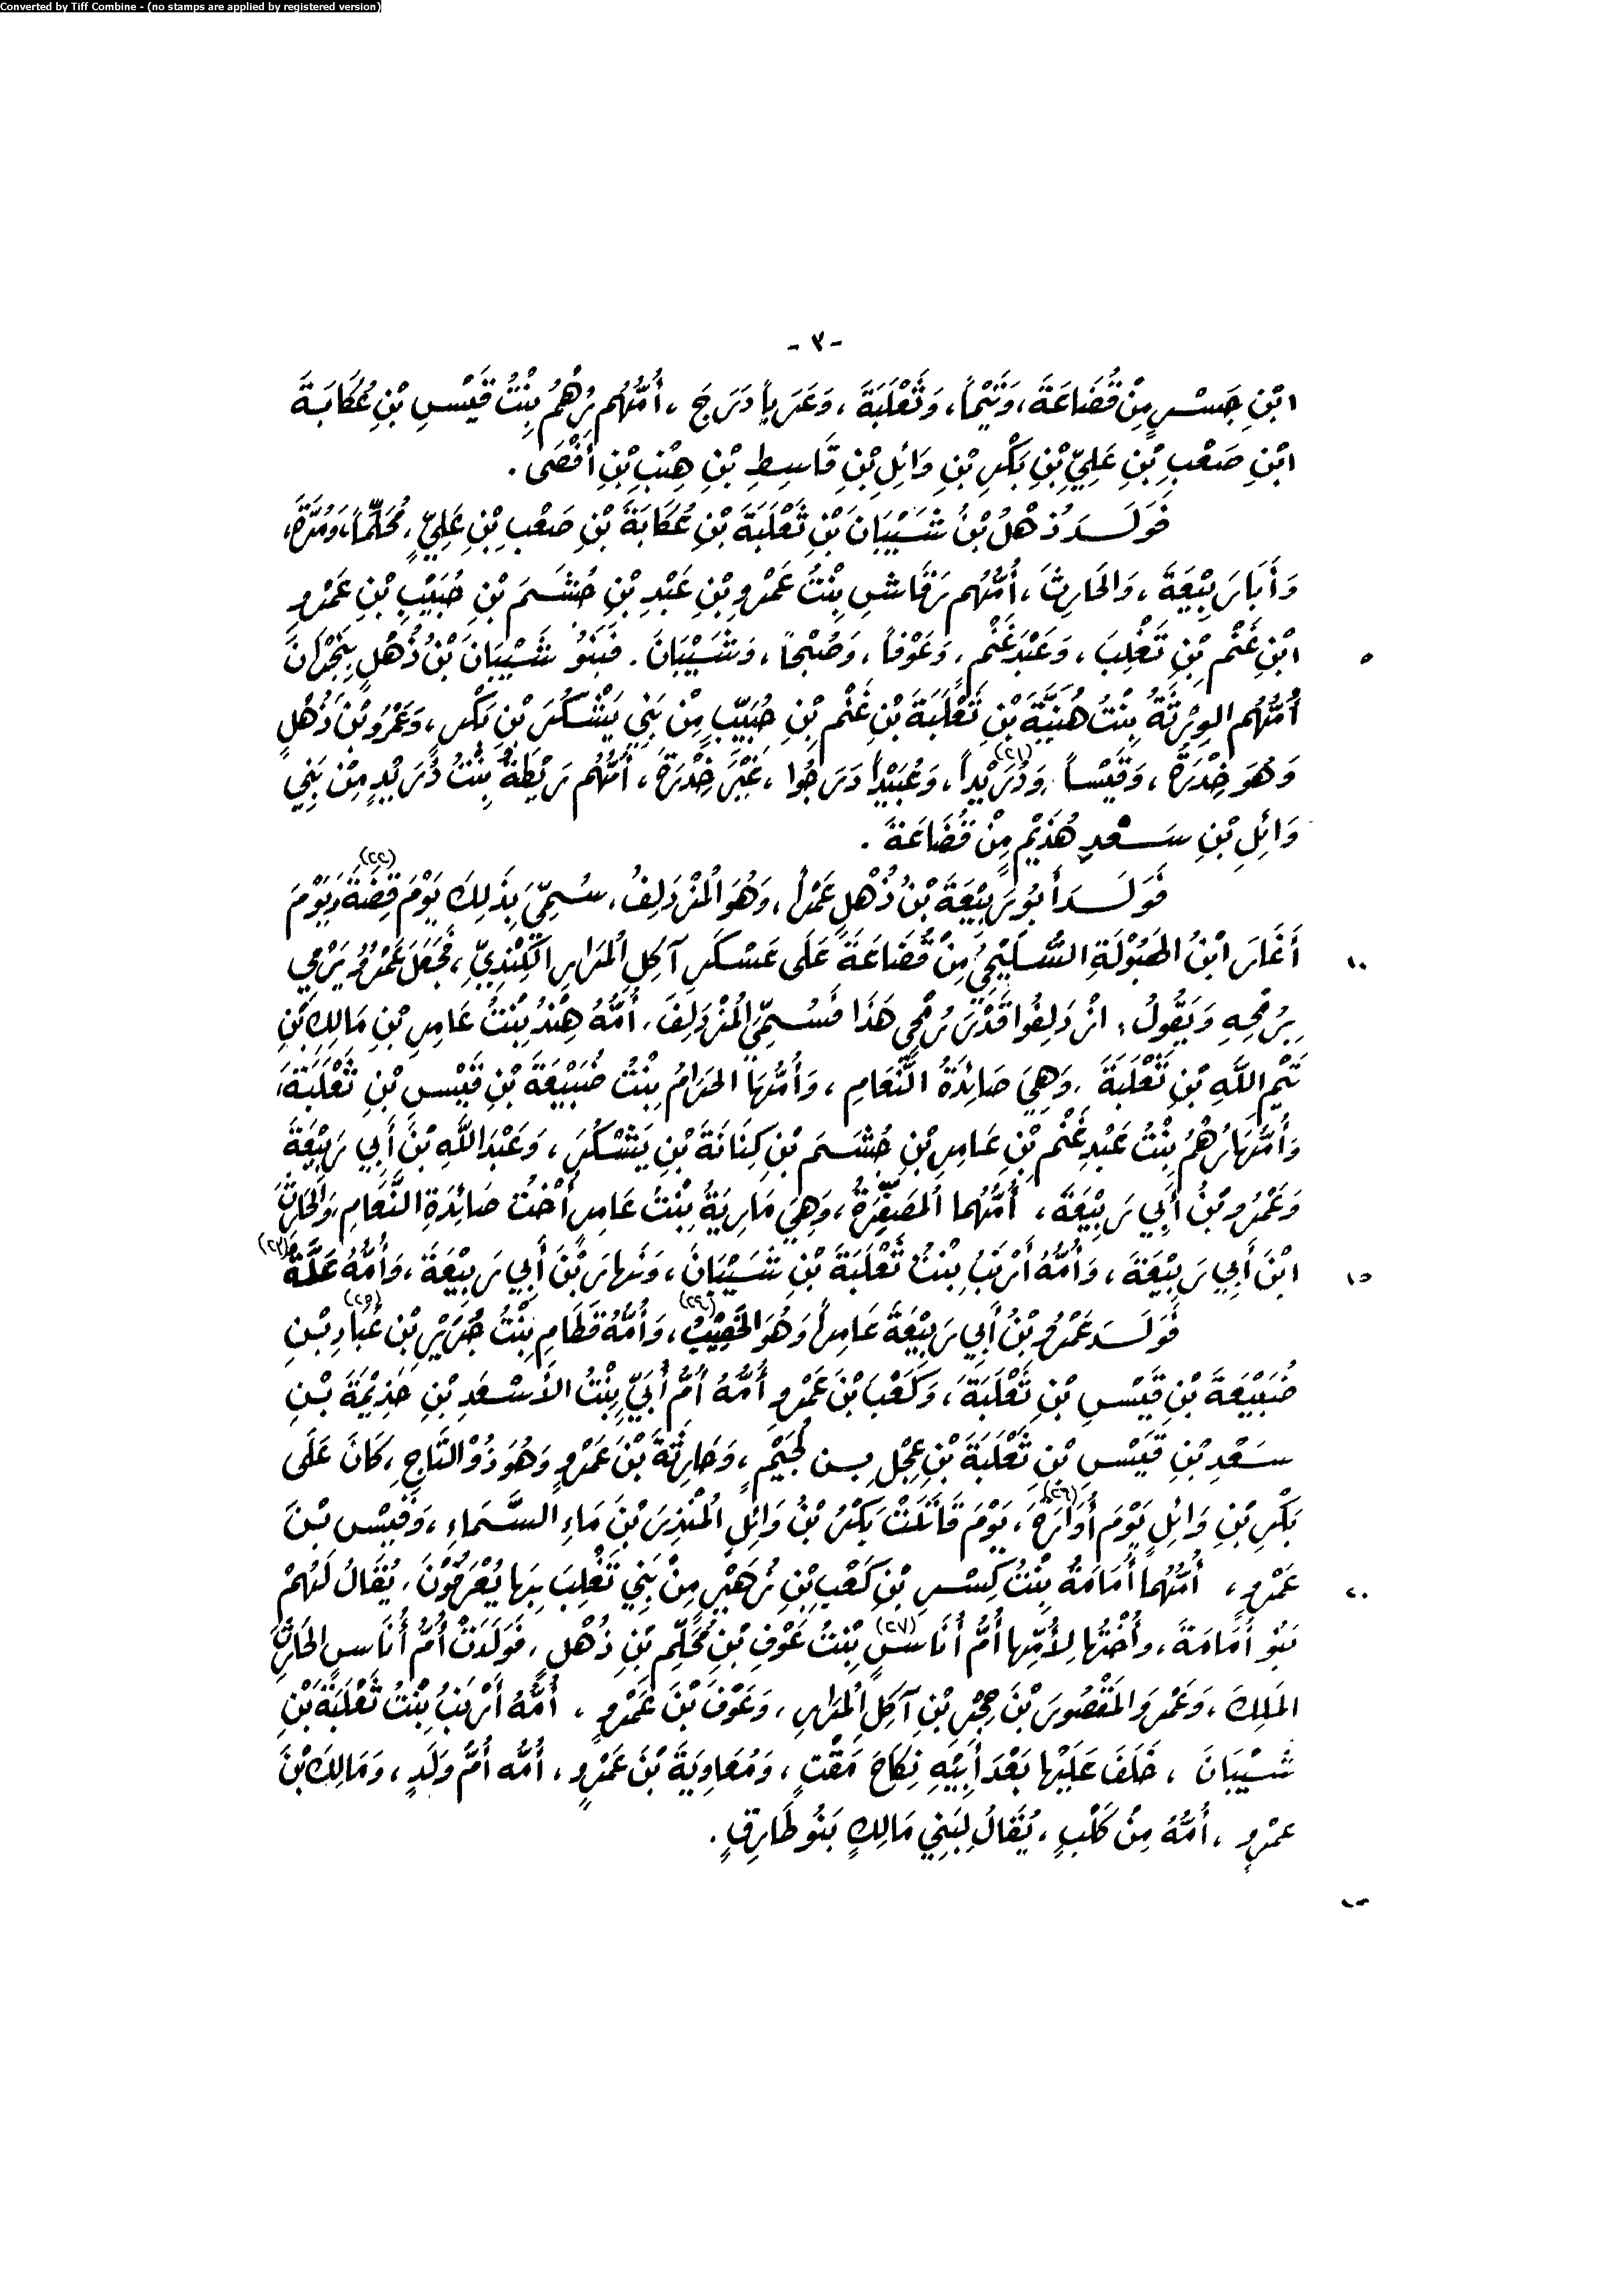 Converted by Tiff Combine - (no stamps are applied by registered version)
- ٣ -
ابْنِ جَسْرٍ مِنْ قُضَاعَةَ، وَتَيْماً، وَثَعْلَبَةَ، وَعَرِياً دَرَجَ، أُمُّهُم رُهْمُ بِنْتُ قَيْسِ بْنِ عُكَابَةَ
ابْنِ صَعْبِ بْنِ عَلِيِّ بْنِ بَكْرِ بْنِ وَائِلِ بْنِ قَاسِطِ بْنِ هِنْبِ بْنِ أَفْصَى.
فَوَلَدَ ذُهْلُ بْنُ شَيْبَانَ بْنِ ثَعْلَبَةَ بْنِ عُكَابَةَ بْنِ صَعْبِ بْنِ عَلِيٍّ، مُحَلِّماً، وَمُرَّةَ،
وَأَبَا رَبِيْعَةَ، وَالحَارِثَ، أُمُّهُم رَقَاشِ بِنْتُ عَمْرِو بْنِ عَبْدِ بْنِ جُشَمَ بْنِ حُبَيْبِ بْنِ عَمْرِو
٥ ابْنِ غَنْمِ بْنِ تَغْلِبَ، وَعَبْدَ غَنْمٍ، وَعَوْفاً، وَصُبْحاً، وَشَيْبَانَ. فَبَنُو شَيْبَانَ بْنُ ذُهْلٍ بِنَجْرَانَ
أُمُّهُم الوِرْثَةُ بِنْتُ هُنَيَّةَ بْنِ ثَعْلَبَةَ بْنِ غَنْمِ بْنِ حُبَيِّبٍ مِنْ بَنِي يَشْكُرَ بْنِ بَكْرٍ، وَعَمْرُو بْنَ ذُهْلٍ
وَهُوَ خِدْرَةُ، وَقَيْساً، وَدُرَيْداً (٢١)، وَعُبَيْداً دَرَجُوا، غَيْرَ خِدْرَةَ، أُمُّهُم رَيْطَةُ بِنْتُ دُرَيْدٍ مِنْ بَنِي
وَائِلِ بْنِ سَعْدِ هُذَيْمٍ مِنْ قُضَاعَةَ.
فَوَلَدَ أَبُو رَبِيْعَةَ بْنُ ذُهْلٍ عَمْراً، وَهُوَ الْمُزْدَلِفُ، سُمِّيَ بِذَلِكَ يَوْمَ قِضَةَ (٢٢)، وَيَوْمَ
١٠ أَغَارَ ابْنُ الهَبُوْلَةِ السَّلِيْحِيُّ مِنْ قُضَاعَةَ عَلَى عَسْكَرِ آكِلِ الْمُرَارِ الكِنْدِيِّ، فَجَعَلَ عَمْرٌو يَرْمِي
بِرُمْحِهِ وَيَقُولُ: ازْدَلِفُوا قَدْرَ رُمْحِي هَذَا فَسُمِّيَ الْمُزْدَلِفَ، أُمُّهُ هِنْدُ بِنْتُ عَامِرِ بْنِ مَالِكِ بْنِ
تَيْمِ اللَّهِ بْنِ ثَعْلَبَةَ، وَهِيَ صَائِدَةُ النَّعَامِ، وَأُمُّهَا الحَرَامُ بِنْتُ ضُبَيْعَةَ بْنِ قَيْسِ بْنِ ثَعْلَبَةَ،
وَأُمُّهَا رُهْمُ بِنْتُ عَبْدِ غَنْمِ بْنِ عَامِرِ بْنِ جُشَمَ بْنِ كِنَانَةَ بْنِ يَشْكُرَ، وَعَبْدَ اللَّهِ بْنَ أَبِي رَبِيْعَةَ
وَعَمْرَو بْنُ أَبِي رَبِيْعَةَ، أُمُّهُما المُصَفِّرَةُ، وَهِيَ مَارِيَةُ بِنْتُ عَامِرٍ أُخْتُ صَائِدَةِ النَّعَامِ، وَالحَارِثَ
١٥ ابْنَ أَبِي رَبِيْعَةَ، وَأُمُّهُ أَرْنَبُ بِنْتُ ثَعْلَبَةَ بْنِ شَيْبَانَ، وَنَهارَ بْنَ أَبِي رَبِيْعَةَ، وَأُمُّهُ عَلَّةُ
فَوَلَدَ عَمْرُو بْنُ أَبِي رَبِيْعَةَ عَامِراً وَهُوَ الخَصِيْبُ، وَأُمُّهُ قَطَامِ بِنْتُ جُرَيْرِ بْنِ عُبَادِ بْنِ
ضُبَيْعَةَ بْنِ قَيْسِ بْنِ ثَعْلَبَةَ، وَكَعْبَ بْنَ عَمْرٍو أُمُّهُ أُمُّ أُبَيٍّ بِنْتُ الأَسْعَدِ بْنِ جَذِيْمَةَ بْنِ
سَعْدِ بْنِ قَيْسِ بْنِ ثَعْلَبَةَ بْنِ عِجْلِ بن لُجَيْمٍ، وَحَارِثَةَ بْنَ عَمْرٍو وَهُوَ ذُوْ التَّاجِ، كَانَ عَلَى
بَكْرِ بْنِ وَائِلٍ يَوْمَ أُوَارَةَ (٢٦)، يَوْمَ قَاتَلَتْ بَكْرُ بْنُ وَائِلٍ الْمُنْذِرَ بْنَ مَاءِ السَّمَاءِ، وَقَيْسَ بْنَ
٢٠ عَمْرٍو، أُمُّهُما أُمَامَةُ بِنْتُ كِسْرِ بْنِ كَعْبِ بْنِ زُهَيْرٍ مِنْ بَنِي تَغْلِبَ بِهَا يُعْرَفُوْنَ، يُقَالُ لَهُمْ
بَنُو أُمَامَةَ، وَأُخْتُها لِأُمِّها أُمُّ أُنَاسٍ (٢٧) بِنْتُ عَوْفِ بْنِ مُحَلِّمِ بْنِ ذُهْلٍ، فَوَلَدَتْ أُمُّ أُنَاسٍ الحَارِثَ
المَلِكَ، وَعَمْرو المَقْصُورَ بْنَ حُجْرِ بْنِ آكِلِ الْمُرَارِ، وَعَوْفَ بْنَ عَمْرٍو، أُمُّهُ أَرْنَبُ بِنْتُ ثَعْلَبَةَ بْنِ
شَيْبَانَ، خَلَفَ عَلَيْها بَعْدَ أَبِيْهِ نِكَاحَ مَقْتٍ، وَمُعَاوِيَةَ بْنَ عَمْرٍو، أُمُّه أُمُّ وَلَدٍ، وَمَالِكَ بْنَ
عمْرٍو، أُمُّهُ مِنْ كَلْبٍ، يُقَالُ لِبَنِي مَالِكٍ بَنُو طَارِقٍ.